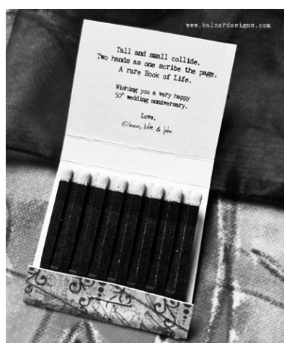 www.balzerdesigns.com
Tall and small collide,
Two hands as one scribe the page.
A rare Book of Life.
Wishing you a very happy
50th wedding anniversary.
Love,
Eileen, & John